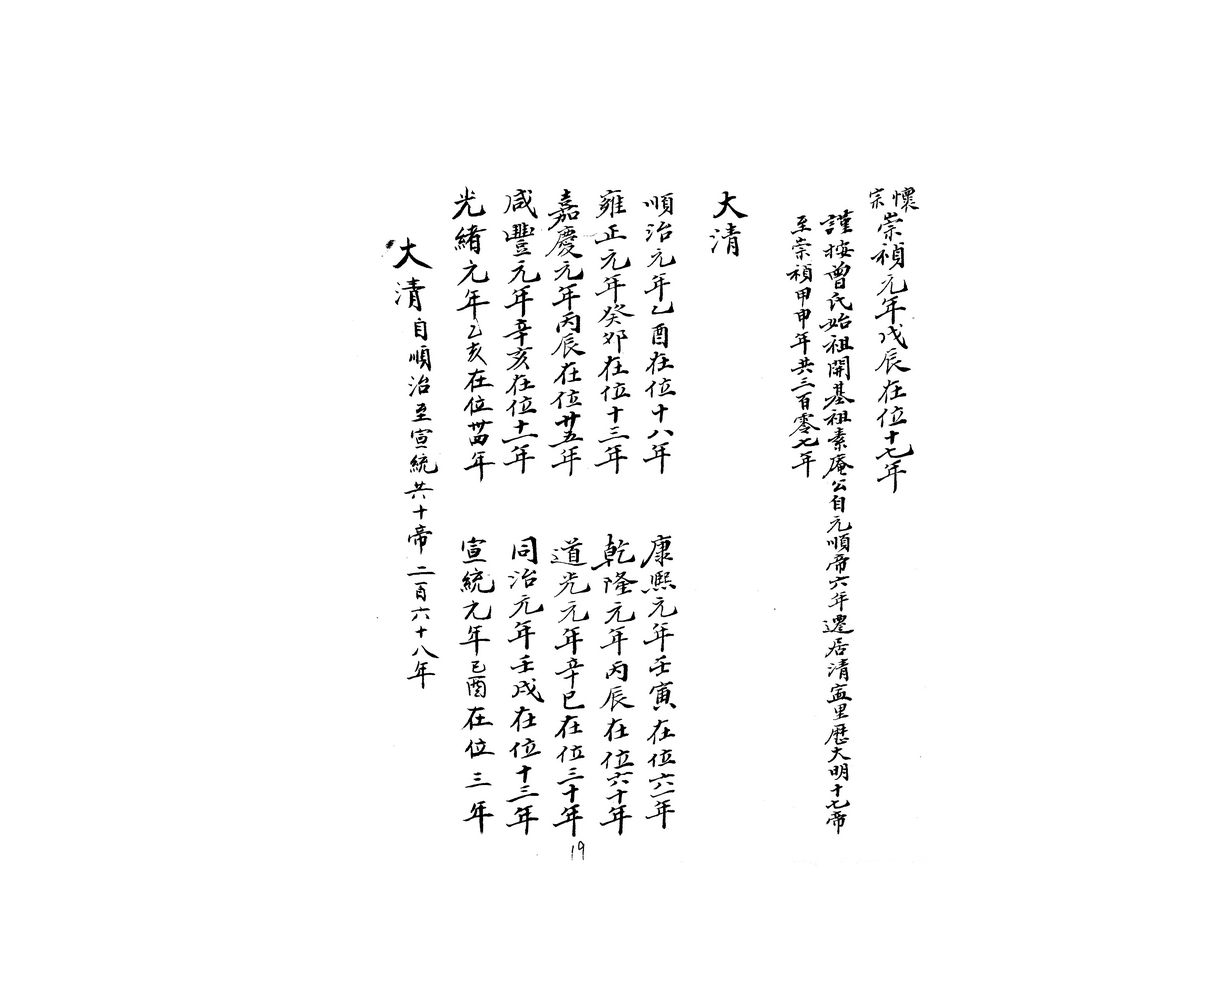 懷宗崇禎元年戊辰在位十七年
謹按曾氏始祖開基祖素庵公自元順帝六年遷居清溋里歷大明十七帝
至崇禎甲申年共三百零七年
大清
順治元年乙酉在位十八年
康熙元年壬寅在位六一年
雍正元年癸卯在位十三年
乾隆元年丙辰在位六十年
嘉慶元年丙辰在位廿五年
道光元年辛巳在位三十年
咸豐元年辛亥在位十一年
同治元年壬戌在位十三年
光緒元年乙亥在位卅四年
宣統元年己酉在位三年
大清自順治至宣統共十帝二百六十八年
19